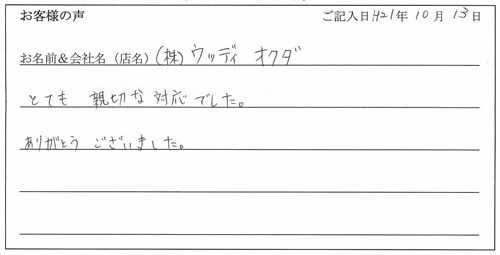 お客様の声 ご記入日 H21年 10月 13日
お名前&会社名（店名）(株)ウッディ オクダ
とても 親切な対応でした。
ありがとう ございました。